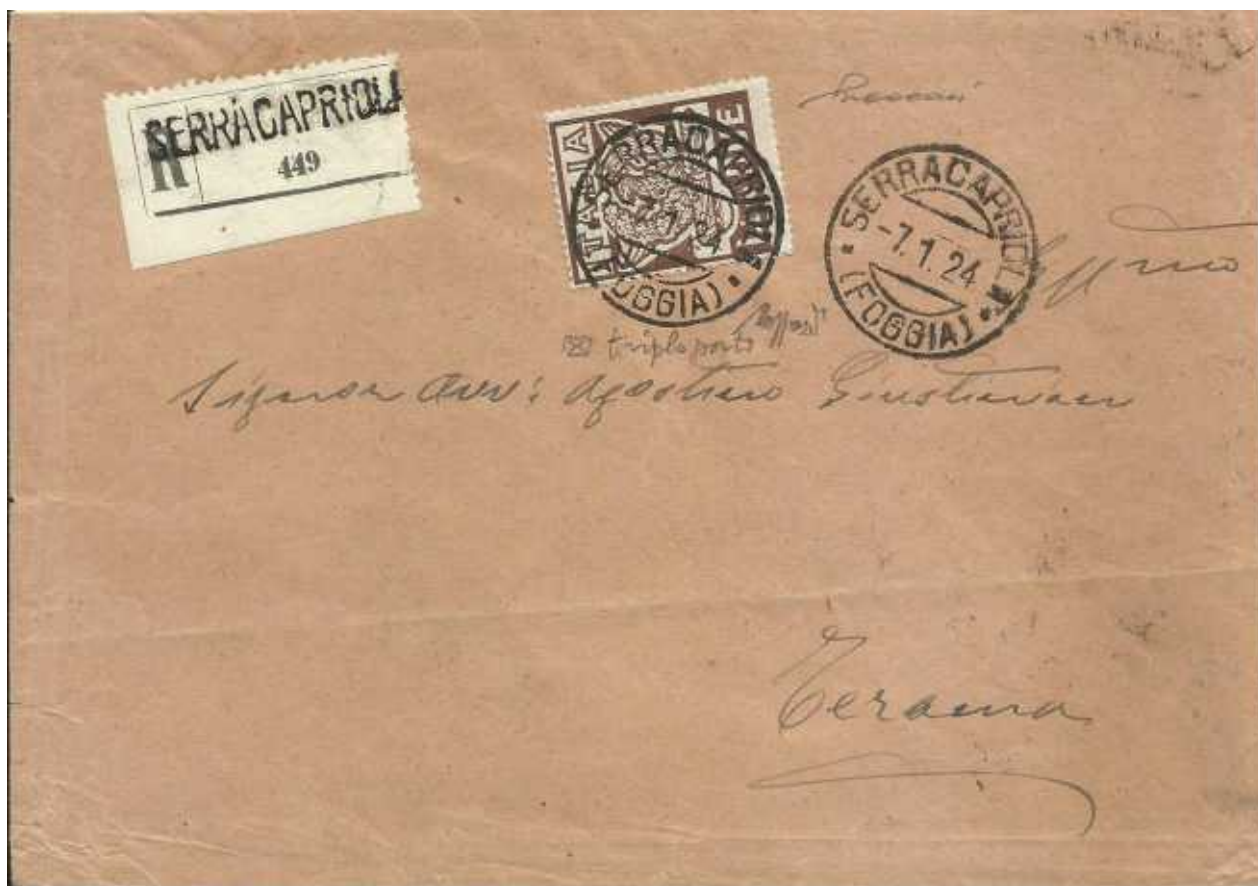 SERRACAPRIOLA
R 449
ITALIA
SERRACAPRIOLA
-7.1.24
(FOGGIA)
SERRACAPRIOLA
-7.1.24
(FOGGIA)
triplo porto
Signor Avv: Agostino Giustiniani
Teramo